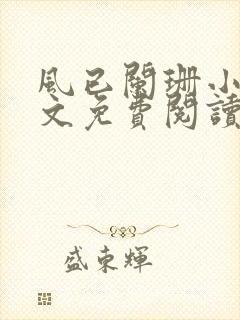 風已闌珊小
文免費閱讀
盛束輝